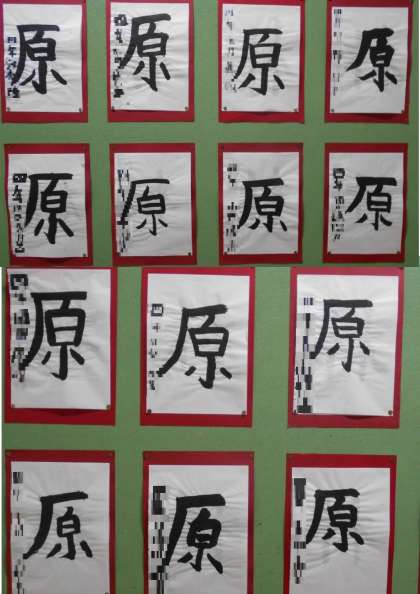 原
原
原
原
原
原
原
原
原
原
原
原
原
原